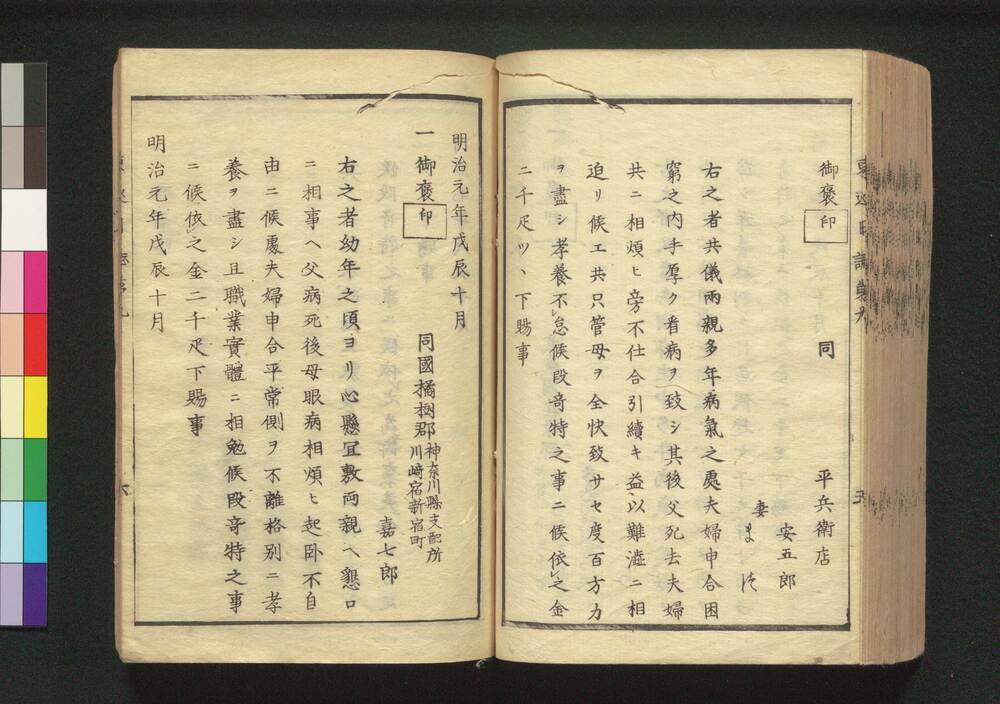 御褒印 同 平兵衛店
安五郎
妻 ま
右之者共儀兩親多年病氣之處夫婦申合困
窮之内手厚ク看病ヲ致シ其後父死去夫婦
共ニ相煩ヒ旁不仕合引續キ益以難澁ニ相
迫リ候エ共只管母ヲ全快致サセ度百方力
ヲ盡シ孝養不怠候段竒特之事ニ候依之金
二千疋ツヽ下賜事
明治元年戊辰十月
一御褒印 同國橘樹郡神奈川縣支配所
川崎宿新宿町
嘉七郎
右之者幼年之頃ヨリ心懸冝敷両親ヘ懇ロ
ニ相事ヘ父病死後母眼病相煩ヒ起卧不自
由ニ候處夫婦申合平常側ヲ不離格別ニ孝
養ヲ盡シ且職業實體ニ相勉候段竒特之事
ニ候依之金二千疋下賜事
明治元年戊辰十月